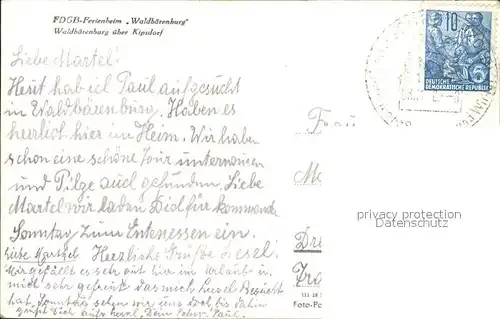 FDGB-Ferienheim „Waldbärenburg"
Waldbärenburg über Kipsdorf
10
DEUTSCHE
DEMOKRATISCHE REPUBLIK
Liebe Martel!
Heut hab ich Paul aufgesucht
in Waldbärenburg. Haben es
herrlich hier im Heim. Wir haben
schon eine schöne Tour unternomen
und Pilze auch gefunden. Liebe
Martel wir laden Dich für kommenden
Sonntag zum Entenessen ein.
Herzliche Grüße Liesel.
Liebe Martel
Mir gefällt es sehr gut hier im Urlaub u.
mich sehr gefreut das mich Liesel Besucht
hat, Sonntag sehen wir uns doch bis dahin
grüßt Dich aufs herzl. Dein Paul.
Frau
privacy protection
Datenschutz
Foto-Po